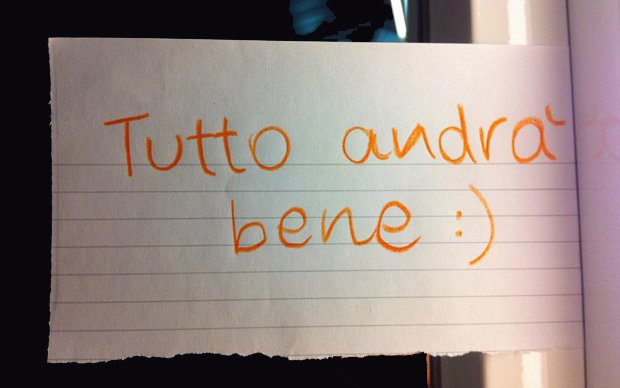 Tutto andrà
bene :)